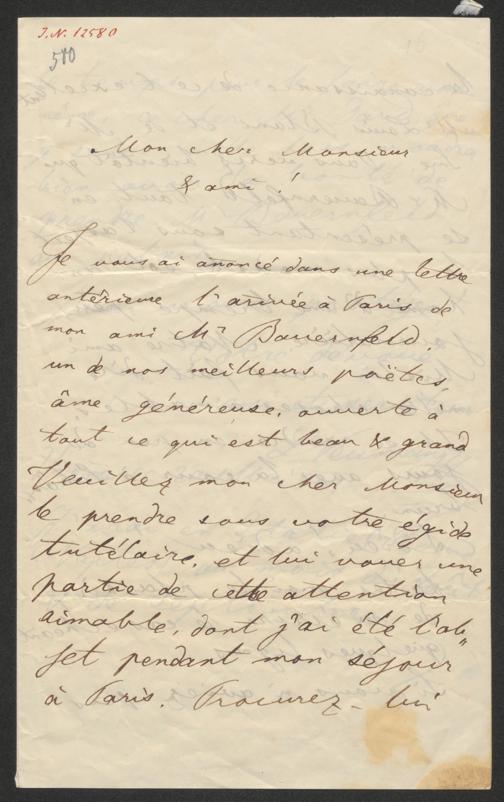 J.N. 12580
580
Mon cher Monsieur
& ami!
Je vous ai anoncé dans une lettre
antérieure l'arivée à Paris de
mon ami Mr Bauernfeld.
un de nos meilleurs poëtes,
âme généreuse, ouverte à
tout ce qui est beau & grand
Veuillez mon cher Monsieur
le prendre sous votre égide
tutélaire, et lui vouer une
partie de cette attention
aimable, dont j'ai été l'ob„
jet pendant mon séjour
à Paris. Procurez-lui